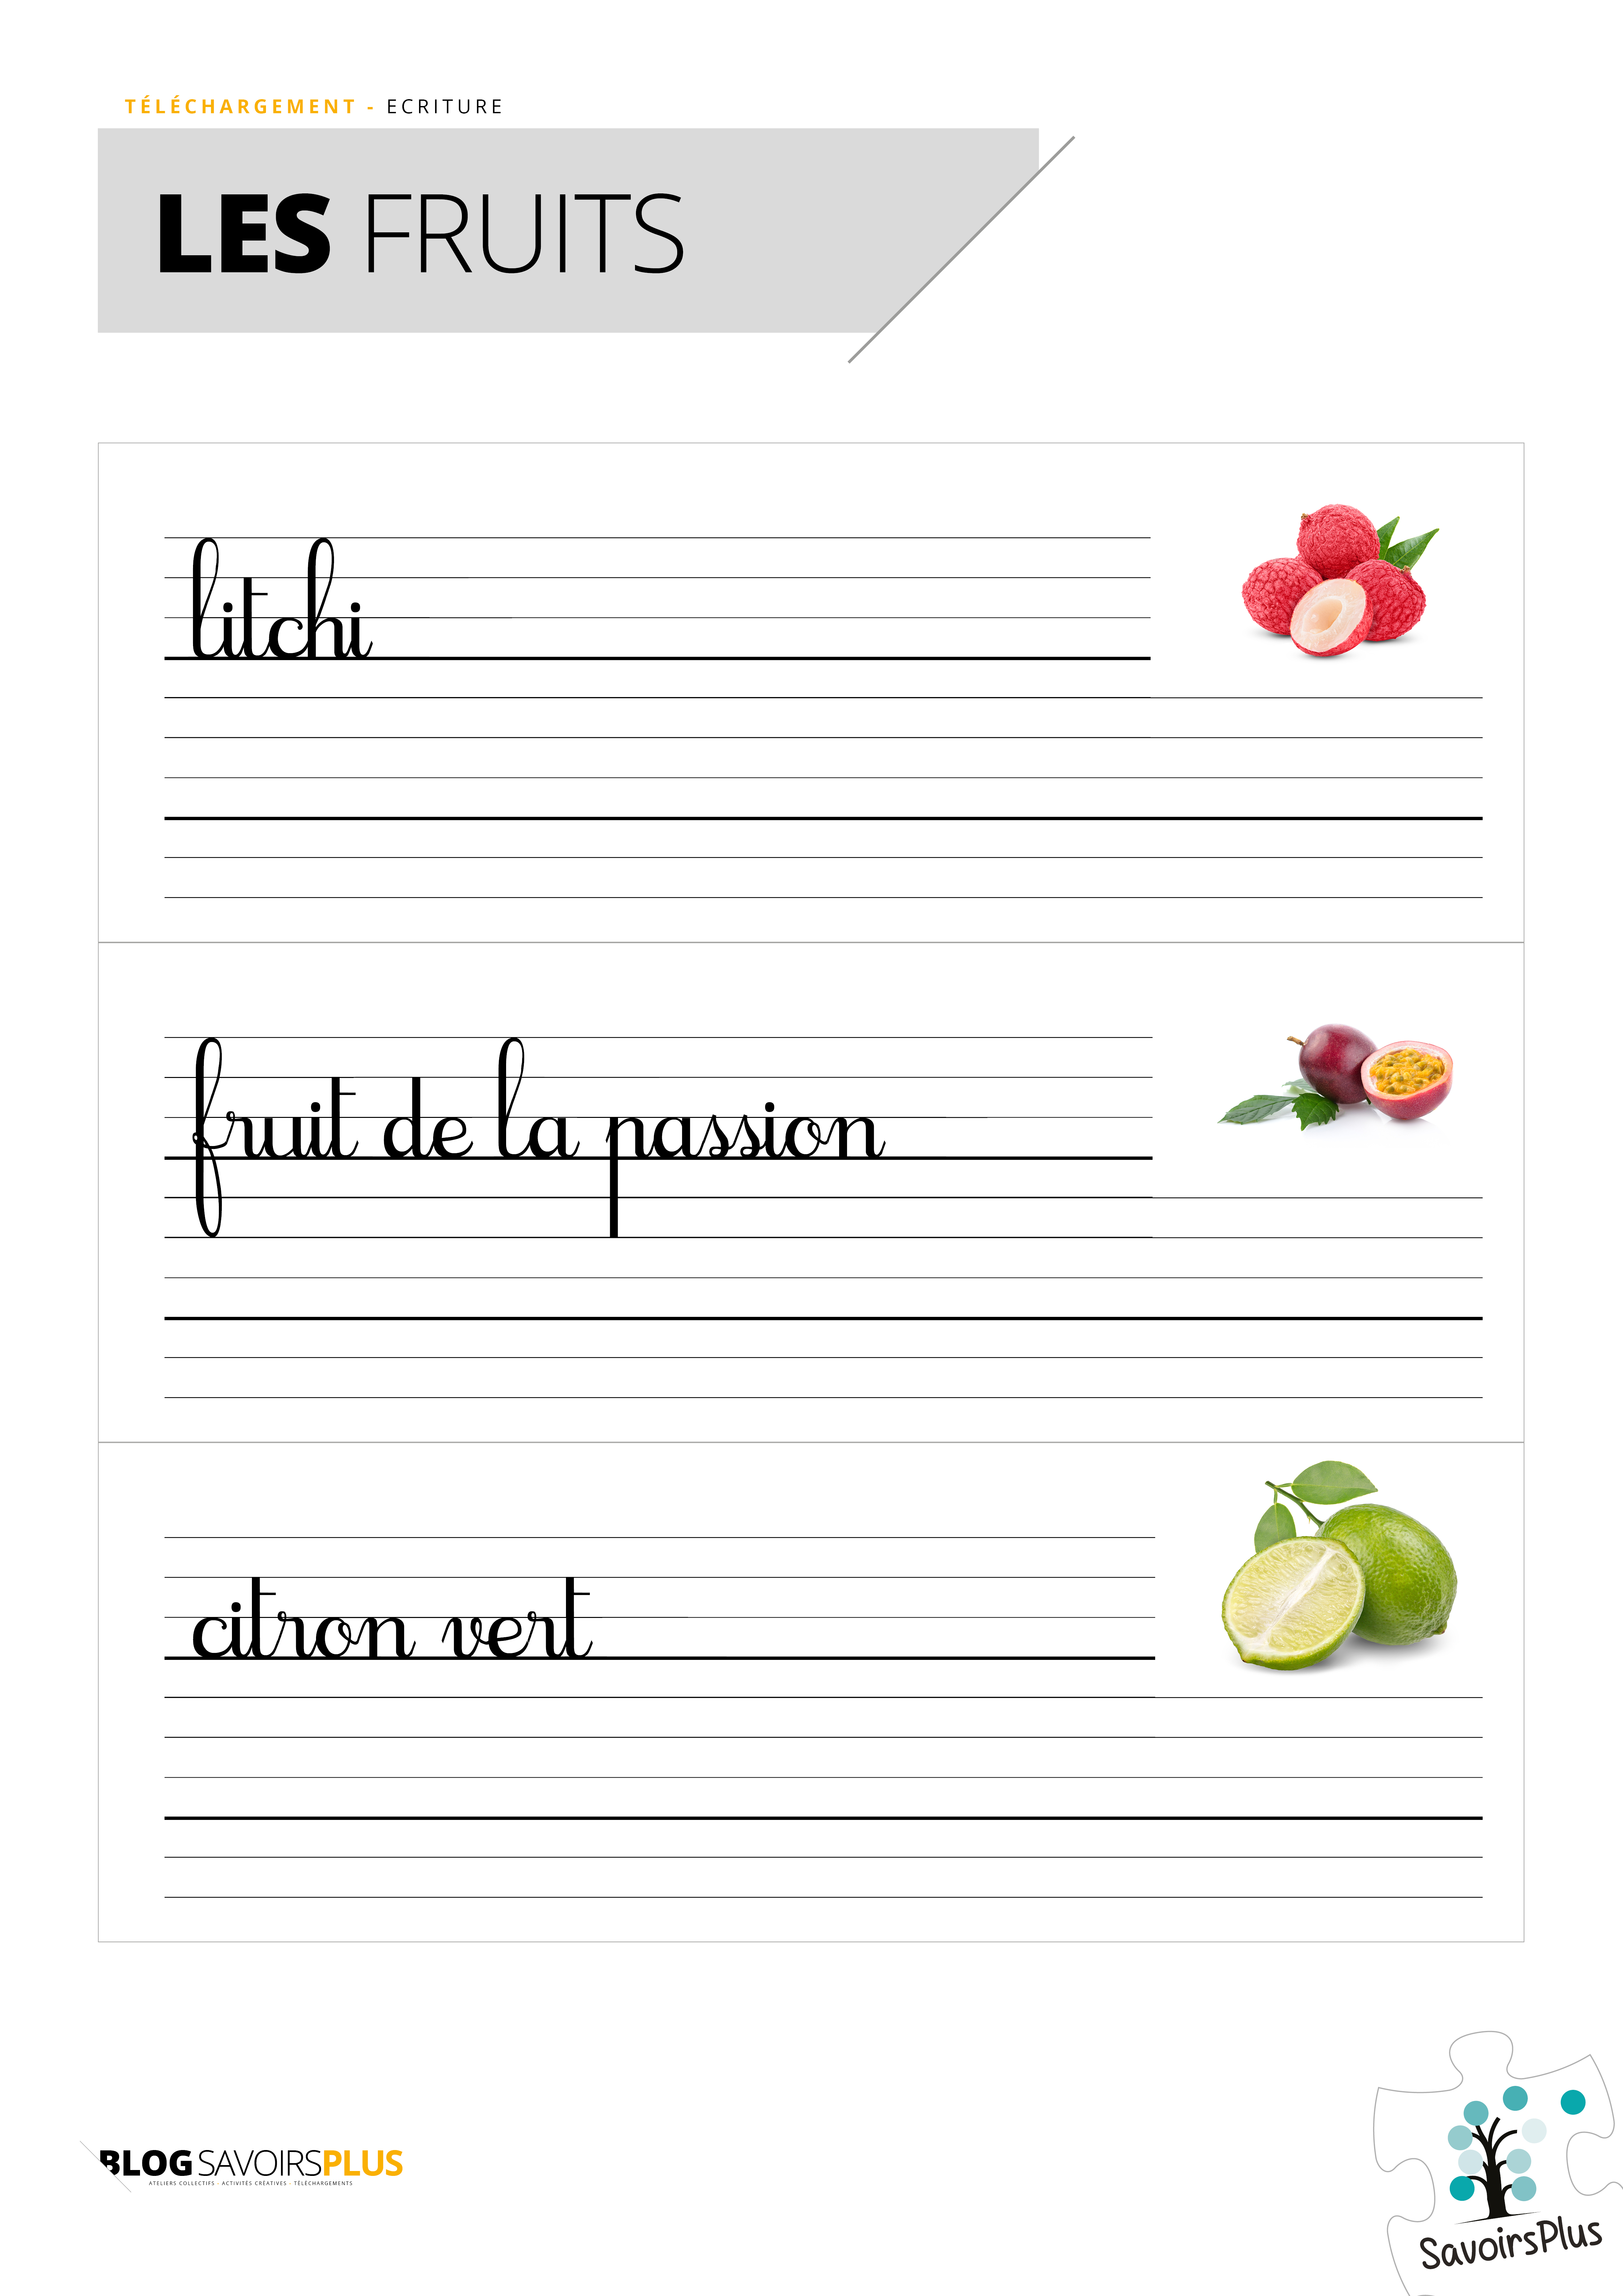 TÉLÉCHARGEMENT - ECRITURE
LES FRUITS
litchi
fruit de la passion
citron vert
BLOG SAVOIRSPLUS
ATELIERS COLLECTIFS - ACTIVITÉS CRÉATIVES - TÉLÉCHARGEMENTS
SavoirsPlus